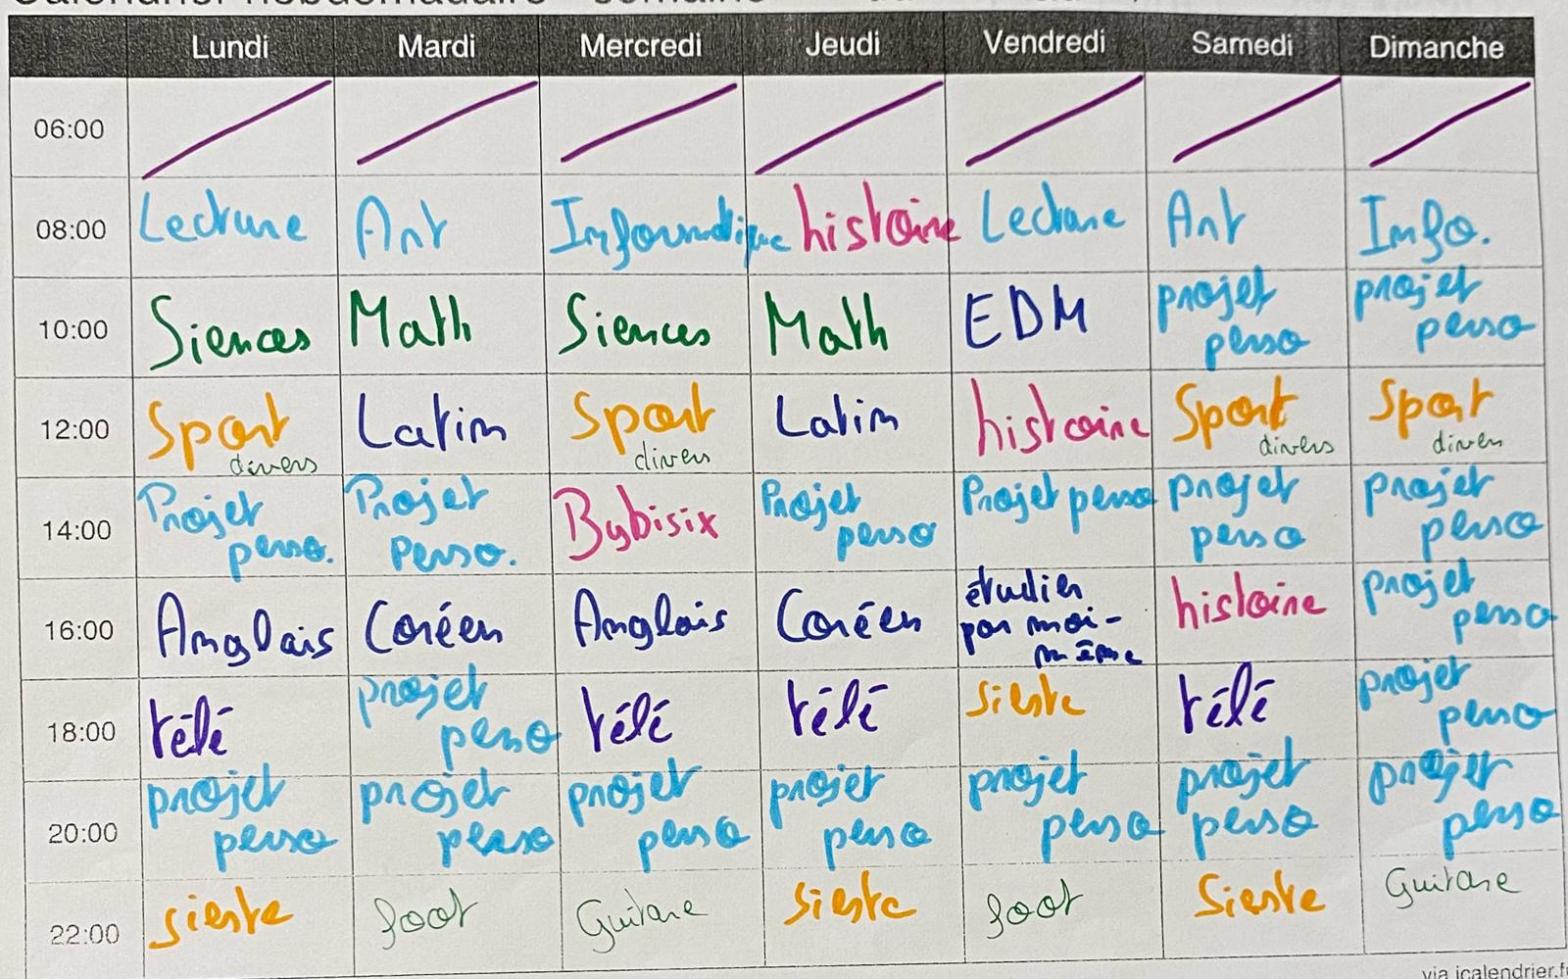 Lundi Mardi Mercredi Jeudi Vendredi Samedi Dimanche
06:00
08:00 Lecture Art Informatique histoire Lecture Art Info.
10:00 Siences Math Siences Math EDM projet perso projet perso
12:00 Sport divers Latin Sport divers Latin histoire Sport divers Sport divers
14:00 Projet perso. Projet perso. Bybisix Projet perso Projet perso projet perso projet perso
16:00 Anglais Coréen Anglais Coréen étudier par moi-même histoire projet perso
18:00 télé projet perso télé télé sieste télé projet perso
20:00 projet perso projet perso projet perso projet perso projet perso projet perso projet perso
22:00 sieste foot Guitare sieste foot Sieste Guitare
via icalendrier.f